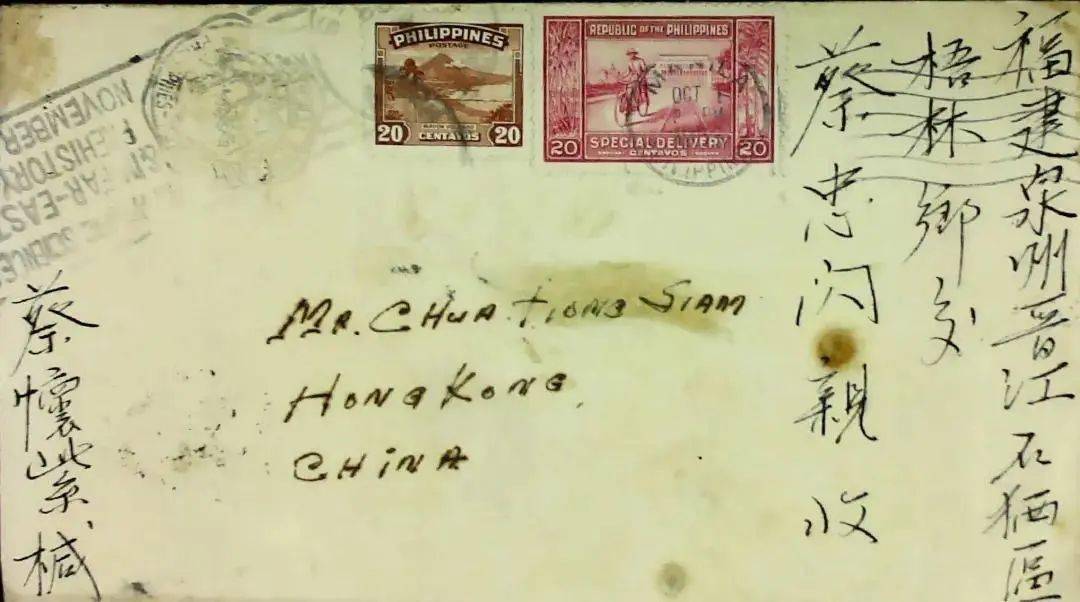 福建泉州晋江石狮區
梧林鄉交
蔡忠闪親收
PHILIPPINES
POSTAGE
20 CENTAVOS 20
REPUBLIC OF THE PHILIPPINES
20 SPECIAL DELIVERY 20
CENTAVOS
MANILA
OCT
NOVEMBER
FAR-EAST
MR. CHUA TIONG SIAM
HONG KONG
CHINA
蔡懷紫槭